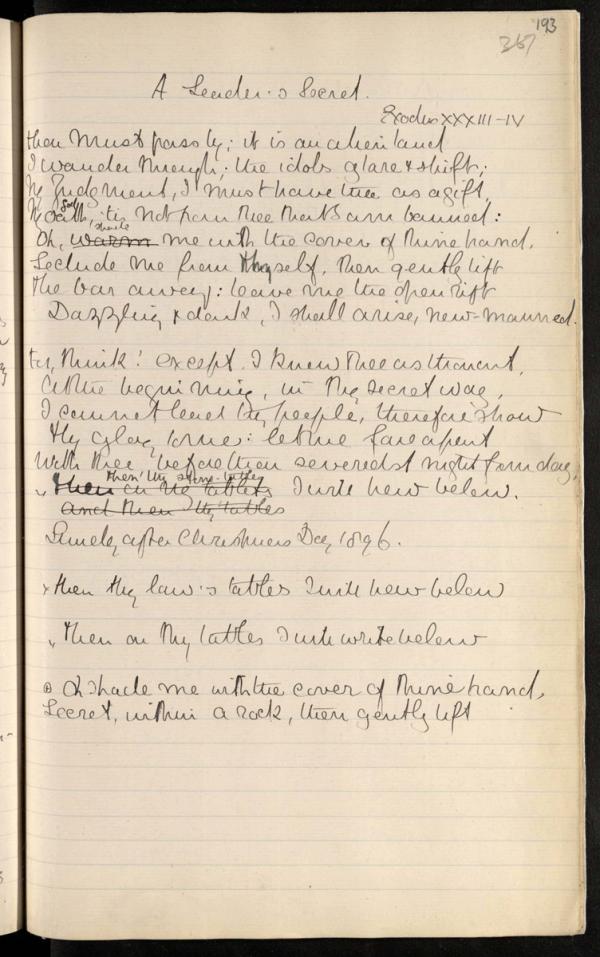 193
367
A Leader's Secret.
Exodus XXXIII-IV
Thou must pass by; it is an alien land
I wander through; the idols glare & shift;
My Judgment, I must have thee as a gift,
My God, 'tis not from thee that I am banned:
shade
Oh, warm me with the cover of thine hand,
Seclude me from thyself, then gently lift
The bar away: leave me the open rift
Dazzling & dark, I shall arise, new-manned.
For, think! except I knew thee as thou art,
At the beginning, in thy secret way,
I cannot lead thy people, therefore show
Thy glory to me: let me fare apart
With thee before thou severedst night from day,
then thy stone-tables
Then on the tables I will hew below.
and then thy tables
Sunday after Christmas Day 1896.
x then thy law's tables I will hew below
Then on thy tables I will write below
O shade me with the cover of thine hand,
Secret, within a rock, then gently lift